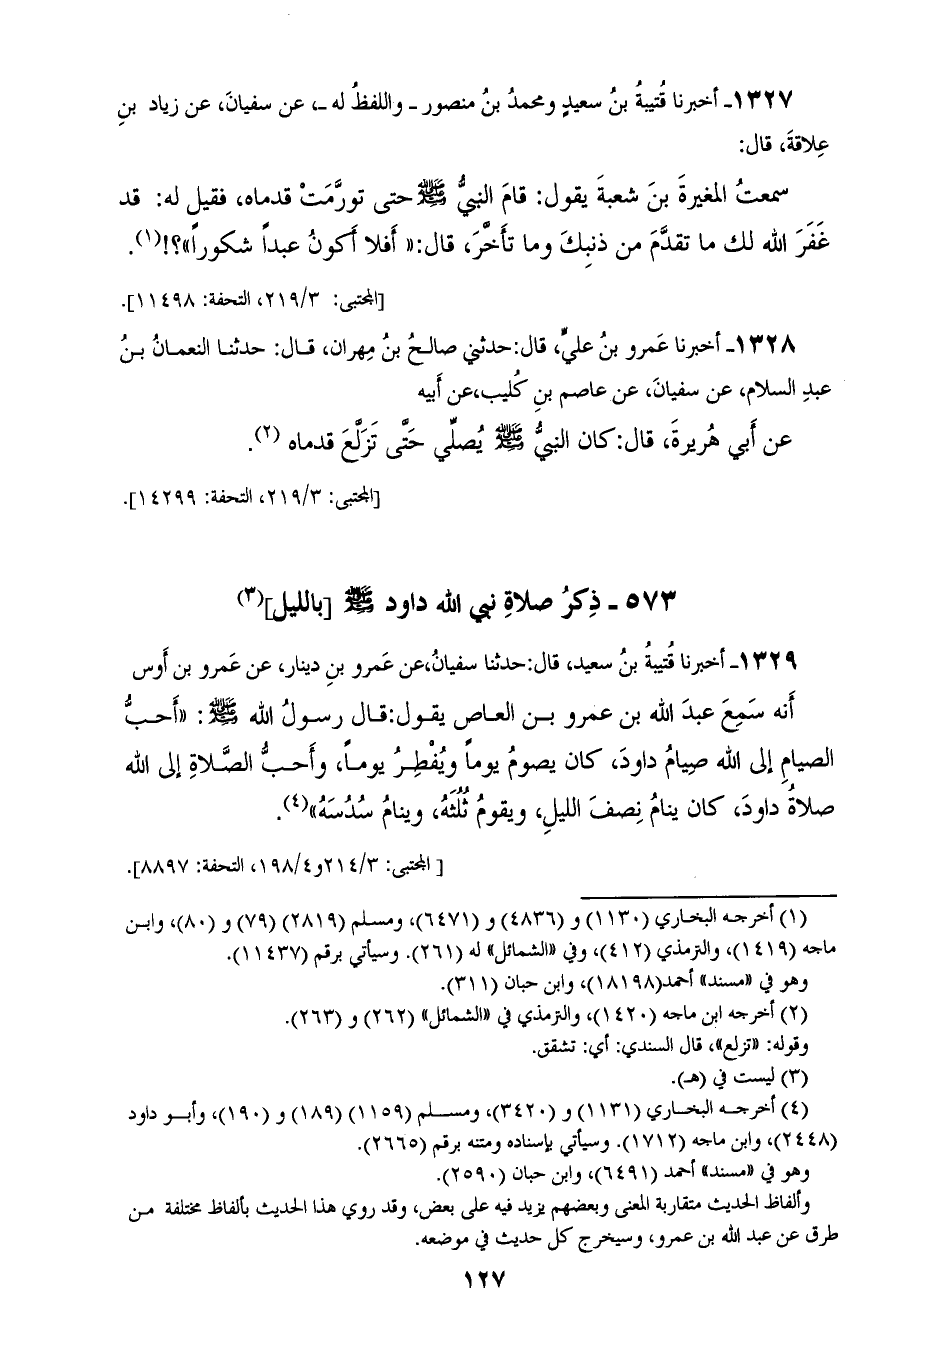 ١٣٢٧ـ أخبرنا قُتيبةُ بنُ سعيدٍ ومحمدُ بنُ منصور ـ واللفظُ له ـ، عن سفيانَ، عن زياد بنِ
عِلاقةَ، قال:
سمعتُ المغيرةَ بنَ شعبةَ يقول: قامَ النبيُّ ﷺ حتى تورَّمَتْ قدماه، فقيل له: قد
غَفَرَ الله لك ما تقدَّمَ من ذنبِكَ وما تأخَّرَ، قال:« أفلا أكونُ عبداً شكوراً»؟!(١).
[المجتبى: ٢١٩/٣، التحفة: ١١٤٩٨].
١٣٢٨ـ أخبرنا عَمرو بنُ عليٍّ، قال:حدثني صالحُ بنُ مِهران، قال: حدثنا النعمانُ بنُ
عبدِ السلام، عن سفيانَ، عن عاصم بنِ كُليب،عن أَبيه
عن أَبي هُريرةَ، قال:كان النبيُّ ﷺ يُصلّي حَتَّى تَزَلَّعَ قدماه (٢).
[المجتبى: ٢١٩/٣، التحفة: ١٤٢٩٩].
٥٧٣ - ذِكرُ صلاةِ نبي الله داود ﷺ [بالليل](٣)
١٣٢٩ـ أخبرنا قُتيبةُ بنُ سعيد، قال:حدثنا سفيانُ،عن عَمرو بنِ دينار، عن عَمرو بن أَوس
أَنه سَمِعَ عبدَ الله بن عمرو بن العاص يقول:قال رسولُ الله ﷺ: «أَحبُّ
الصيامِ إلى الله صِيامُ داودَ، كان يصومُ يوماً ويُفْطِرُ يوماً، وأَحبُّ الصَّلاةِ إلى الله
صلاةُ داودَ، كان ينامُ نِصفَ الليلِ، ويقومُ ثُلُثَهُ، وينامُ سُدُسَهُ»(٤).
[ المجتبى: ٢١٤/٣و١٩٨/٤، التحفة: ٨٨٩٧].
(١) أخرجه البخاري (١١٣٠) و (٤٨٣٦) و (٦٤٧١)، ومسلم (٢٨١٩) (٧٩) و (٨٠)، وابن
ماجه (١٤١٩)، والترمذي (٤١٢)، وفي «الشمائل» له (٢٦١). وسيأتي برقم (١١٤٣٧).
وهو في «مسند» أحمد(١٨١٩٨)، وابن حبان (٣١١).
(٢) أخرجه ابن ماجه (١٤٢٠)، والترمذي في «الشمائل» (٢٦٢) و (٢٦٣).
وقوله: «تزلع»، قال السندي: أي: تشقق.
(٣) ليست في (هـ).
(٤) أخرجه البخاري (١١٣١) و (٣٤٢٠)، ومسلم (١١٥٩) (١٨٩) و (١٩٠)، وأبو داود
(٢٤٤٨)، وابن ماجه (١٧١٢). وسيأتي بإسناده ومتنه برقم (٢٦٦٥).
وهو في «مسند» أحمد (٦٤٩١)، وابن حبان (٢٥٩٠).
وألفاظ الحديث متقاربة المعنى وبعضهم يزيد فيه على بعض، وقد روي هذا الحديث بألفاظ مختلفة من
طرق عن عبد الله بن عمرو، وسيخرج كل حديث في موضعه.
١٢٧